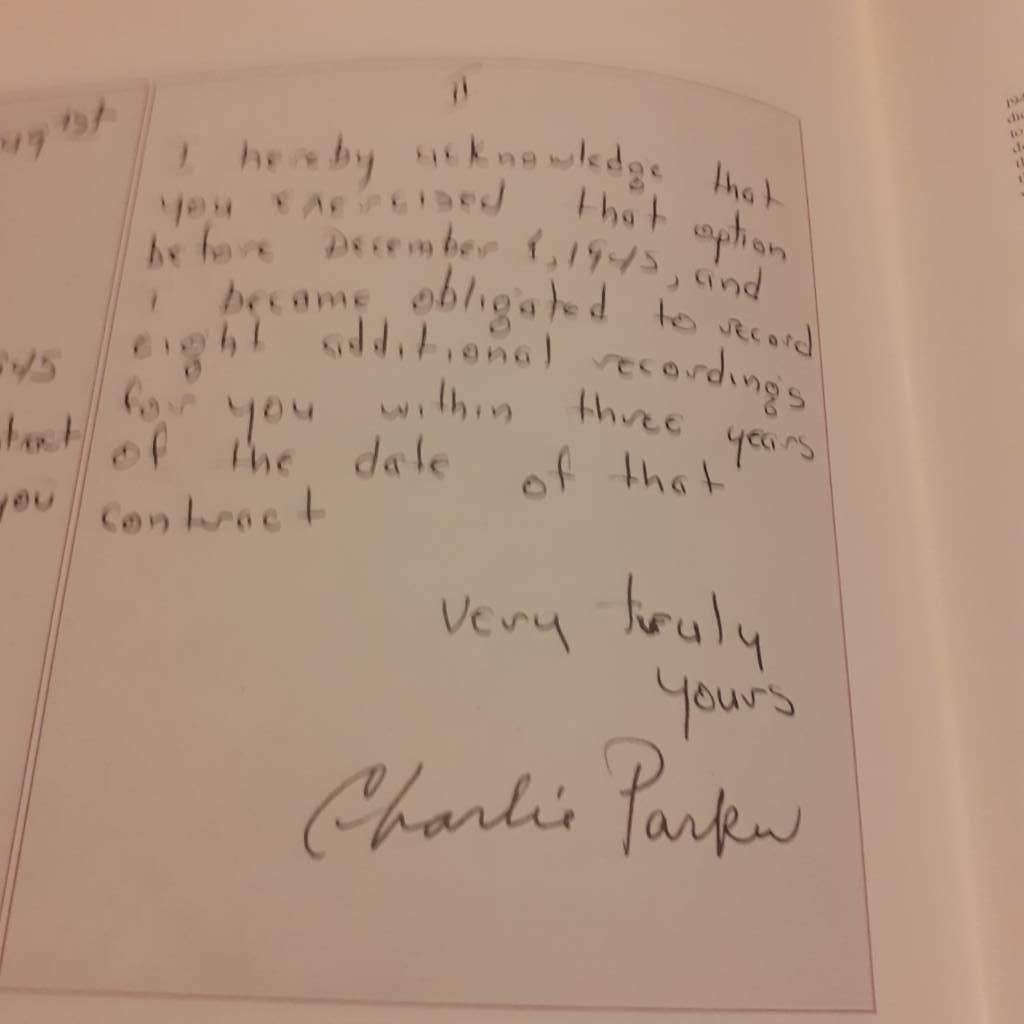 11
1st
I hereby acknowledge that
you exercised that option
before December 1, 1945, and
I became obligated to record
eight additional recordings
for you within three years
of the date of that
contract
you
Very truly
yours
Charlie Parker